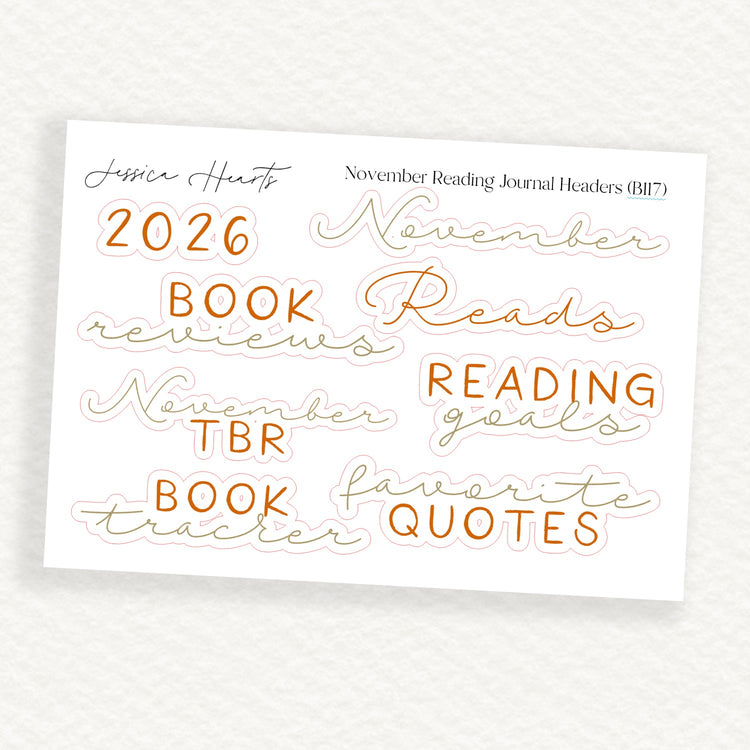 Jessica Hearts
November Reading Journal Headers (B117)
2026
November
BOOK
reviews
Reads
READING
goals
November
TBR
BOOK
tracker
favorite
QUOTES